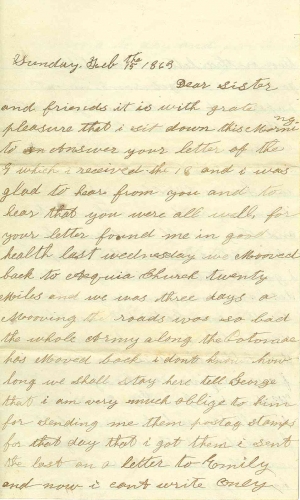 Sunday, Feb the 15 1863
Dear Sister
and friends it is with grate
pleasure that i sit down this Morning
to Answer your letter of the
9 which i received the 13 and i was
glad to hear from you and to
hear that you were all well, for
your letter found me in good
health last wednesday we Mooved
back to Acquia Church twenty
Miles and we was three days a
Mooving the roads was so bad
the whole Army along the Potomac
has Moved back i dont know how
long we shall stay here tell George
that i am very much oblige to him
for sending me them postag stamps
for that day that i got them i sent
the last on a letter to Emily
and now i cant write only